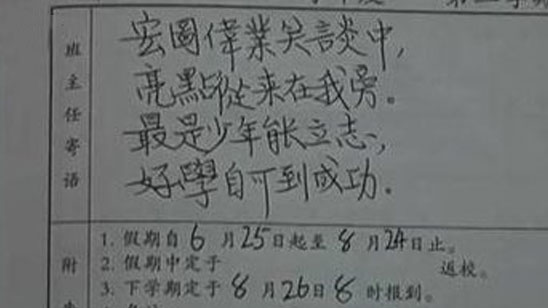 班主任寄语
宏圖偉業笑談中,
亮點從来在我旁。
最是少年能立志,
好學自可到成功.
附
1. 假期自6月25日起至8月24日止。
2. 假期中定于 返校。
3. 下学期定于8月26日8时报到。